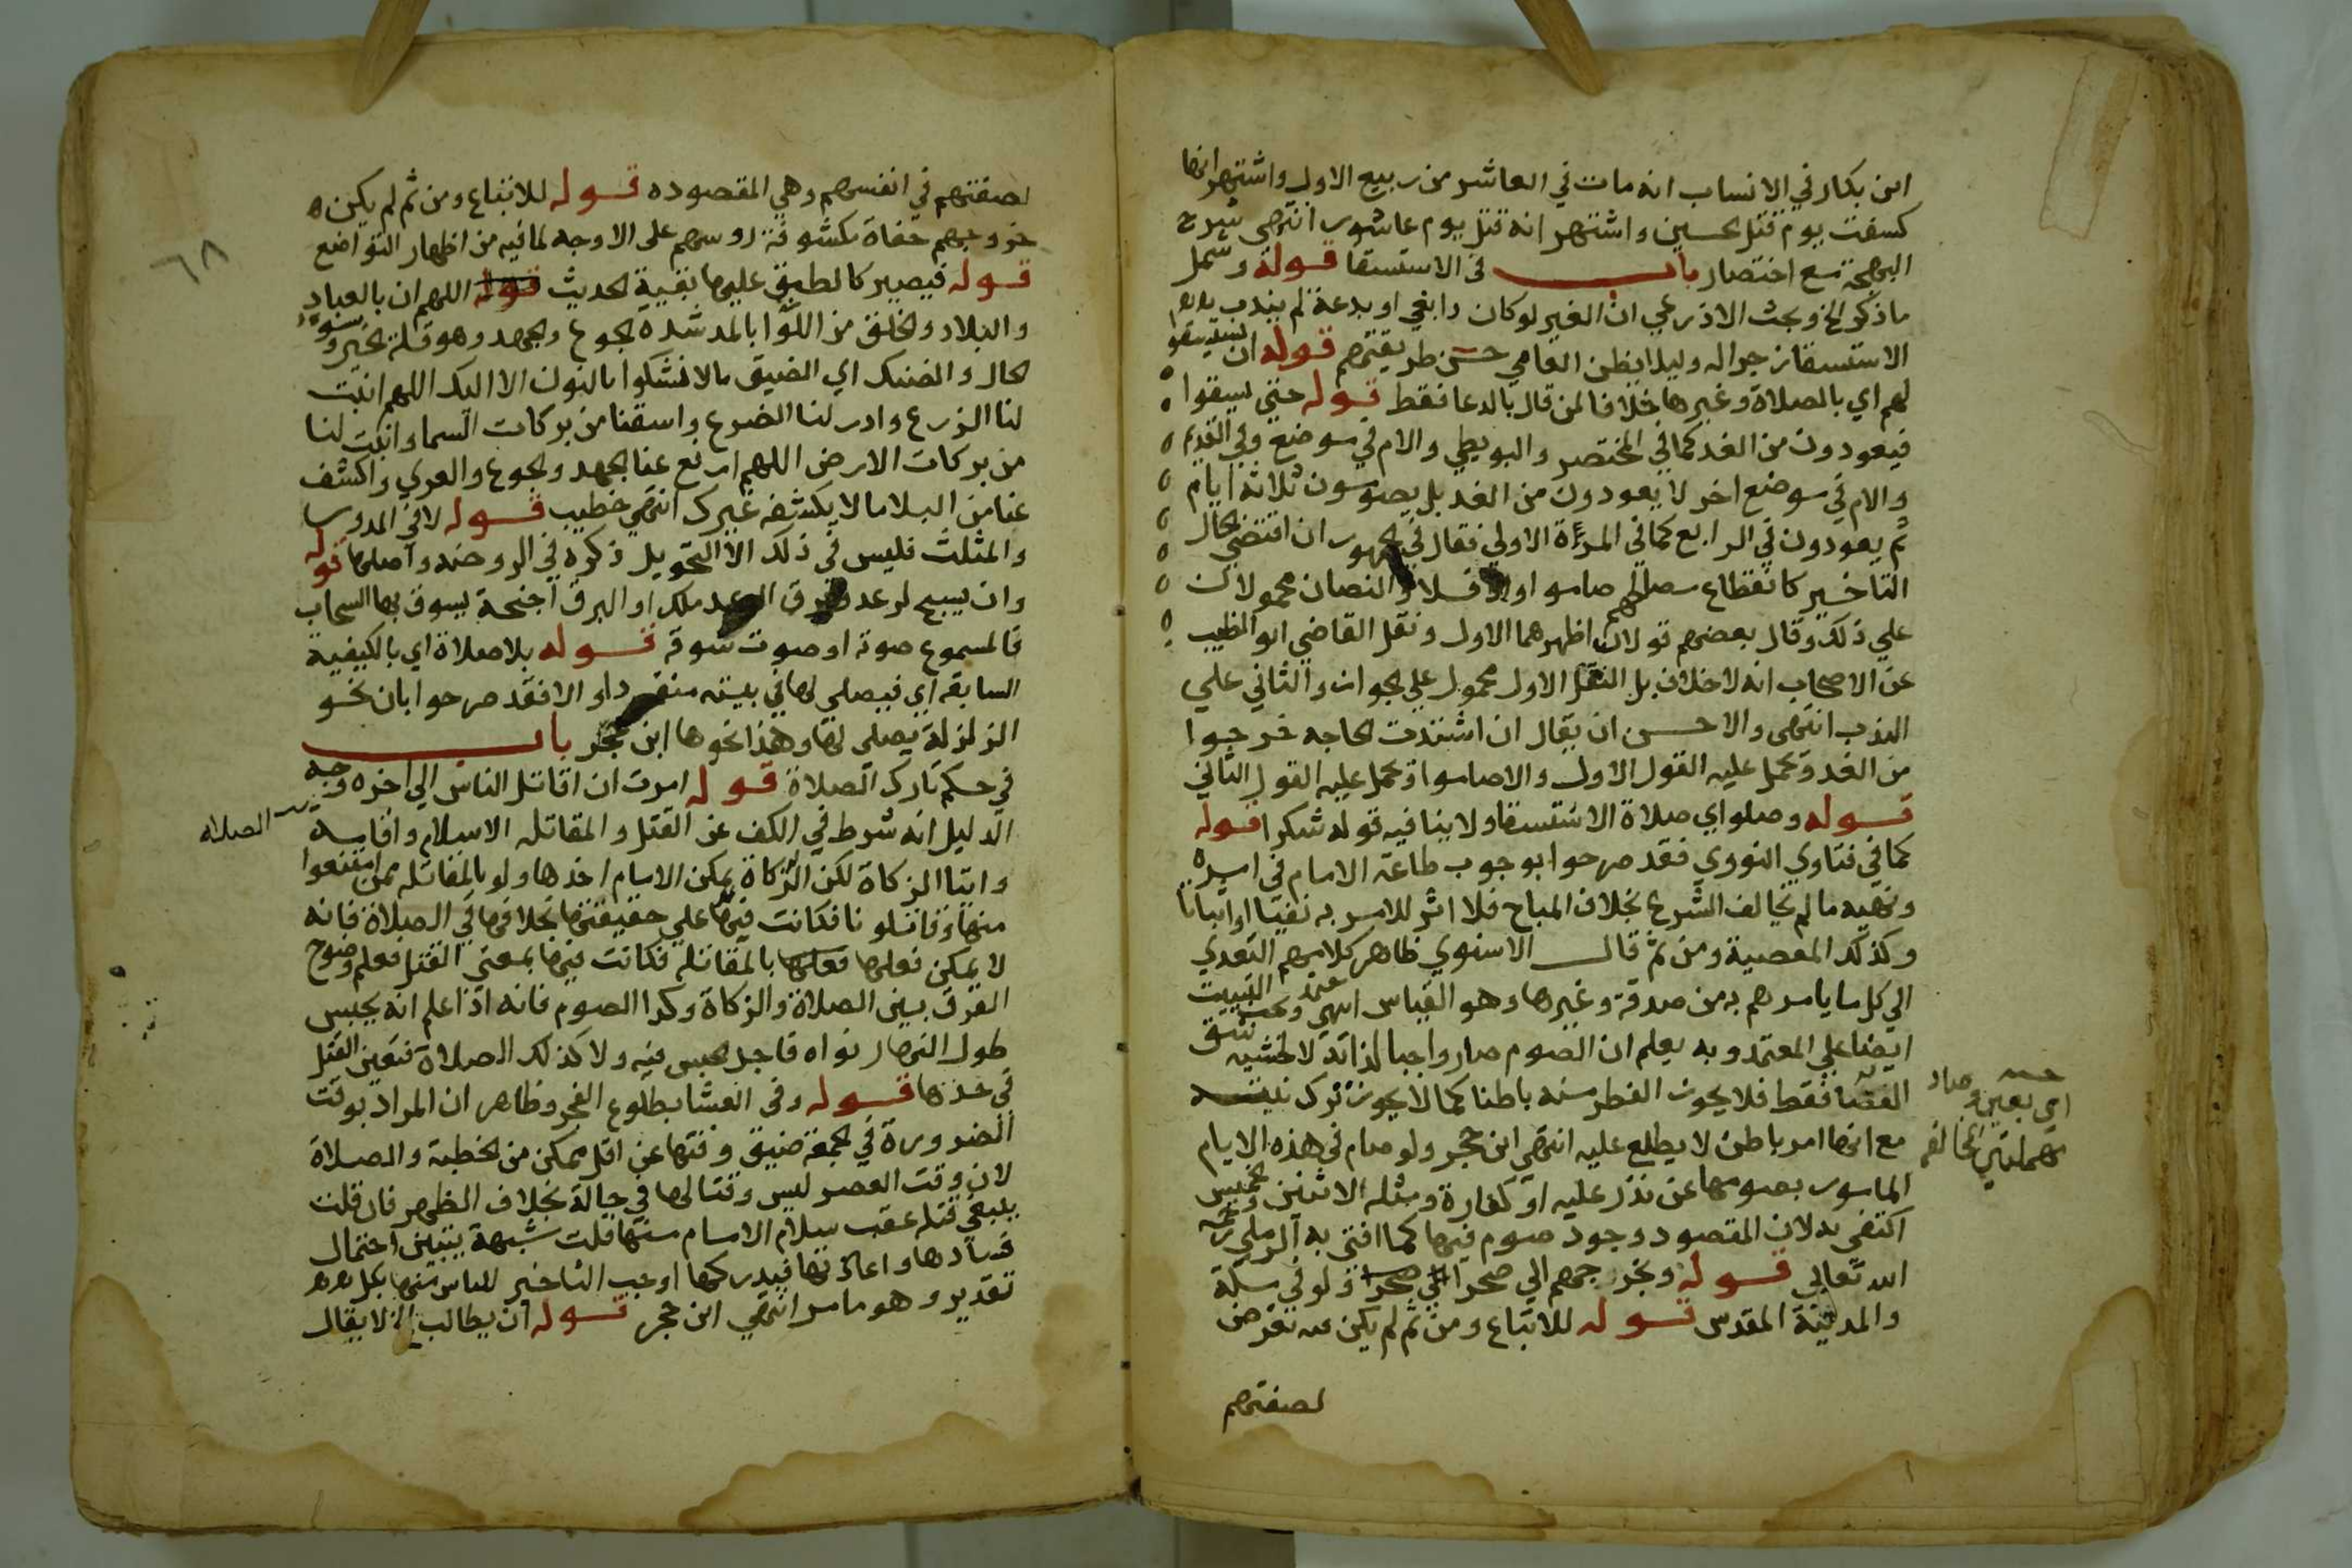 ابن بكار في الانساب انه مات في العاشر من ربيع الاول واشتهر انها
كسفت يوم قتل الحسين واشتهر انه قتل يوم عاشورا انتهى شرح
البهجة مع اختصار باب في الاستسقا قوله وشمل
ماذكر الخ وبحث الاذرعي ان الغير لو كان رابغي او بدعة لم يندب
الاستسقا زجرا له وليلا يظن العامي حسن طريقتهم قوله ان
لهم اي بالصلاة وغيرها خلافا لمن قال بالدعا فقط قوله حتى يسقوا
فيعودون من الغد كما في المختصر والبويطي والام في موضع وفي القديم
والام في موضع اخر لا يعودون من الغد بل يصومون ثلاثة ايام
ثم يعودون في الرابع كما في المرة الاولى فقال في الجمهور ان اقتضى الحال
التاخير كانقطاع مصالحهم صاموا اولا والنصان محمولان
على ذلك وقال بعضهم قولان اظهرهما الاول ونقل القاضي ابو الطيب
عن الاصحاب انه لا خلاف بل النقل الاول محمول على الجواز والثاني على
الندب انتهى والاحسن ان يقال ان اشتدت الحاجه خرجوا
من الغد وتحمل عليه القول الاول والا صاموا وتحمل عليه القول الثاني
قوله وصلو اي صلاة الاستسقا ولا ينافيه قوله شكرا قوله
كما في فتاوي النووي فقد صرحوا بوجوب طاعة الامام في امره
ونهيه ما لم يخالف الشرع بخلاف المباح فلا اثر للامر به نفيا او اثباتا
وكذلك المعصية ومن ثم قال الاسنوي ظاهر كلامهم التعدي
الى كل ما يامرهم به من صدقة وغيرها وهو القياس انتهى وبحث عند التبييت
ايضا على المعتمد وبه يعلم ان الصوم صار واجبا لذاته لا لخشية شق
العصا فقط فلا يجوز الفطر منه باطنا كما لا يجوز ترك نيته
اي بعين وصاد
مهملتين المخالفه
مع انها امر باطن لا يطلع عليه انتهى ابن حجر ولو صام في هذه الايام
المامور بصومها عن نذر عليه او كفارة ومثله الاثنين والخميس
اكتفى به لان المقصود وجود صوم فيها كما افتى به الرملي رحمه
الله تعالى قوله ويخرجهم الى صحرا الى صحرا ولو في مكة
والمدينة المقدس قوله للاتباع ومن ثم لم يكن فيه تعرض
لصفتهم
٦٨
لصفتهم في انفسهم وهي المقصوده قوله للاتباع ومن ثم لم يكن
خروجهم حفاة مكشوفة روسهم على الاوجه لما فيه من اظهار التواضع
قوله فيصير كالطبق عليها بقية الحديث قوله اللهم ان بالعباد
والبلاد والخلق من اللوا بالمد شدة الجوع والجهد وهو قلة الخير وسو
الحال والضنك اي الضيق ما لا نشكوا بالنون الا اليك اللهم انبت
لنا الزرع وادر لنا الضرع واسقنا من بركات السما وانبت لنا
من بركات الارض اللهم ارفع عنا الجهد والجوع والعري واكشف
عنا من البلا ما لا يكشفه غيرك انتهى خطيب قوله لا في المدور
والمثلث فليس في ذلك الا التحويل ذكره في الروضه واصلها قوله
وان يسبح لرعد وبرق الرعد ملك او البرق اجنحة يسوق بها السحاب
فالمسموع صوته او صوت سوقه قوله بلا صلاة اي بالكيفية
السابقه اي فيصلى لها في بيته منفردا والا فقد صرحوا بان نحو
الزلزلة يصلى لها وهذا نحوها ابن حجر باب
في حكم تارك الصلاة قوله امرت ان اقاتل الناس الى اخره وجه
الدليل انه شرط في الكف عن القتل والمقاتله الاسلام واقامة
الصلاه
وايتا الزكاة لكن الزكاة يمكن الامام اخذها ولو بالمقاتله ممن امتنعوا
منها وقاتلونا فكانت فيها على حقيقتها بخلافها في الصلاة فانه
لا يمكن فعلها فعلها بالمقاتلة فكانت فيها بمعنى القتل فعلم وضوح
الفرق بين الصلاة والزكاة وكذا الصوم فانه اذا علم انه يحبس
طول النهار نواه فاجدى الحبس فيه ولا كذلك الصلاة فتعين القتل
في حدها قوله وفي العشا بطلوع الفجر وظاهر ان المراد بوقت
الضرورة في الجمعة ضيق وقتها عن اقل ممكن من الخطبة والصلاة
لان وقت العصر ليس وقتا لها في حالة بخلاف الظهر فان قلت
ينبغي قتله عقب سلام الامام منها قلت شبهة يتبين احتمال
فسادها واعادتها فيدركها اوجب التاخير للياس منها بكل
تقدير وهو مامر انتهى ابن حجر قوله ان يطالب الخ لا يقال